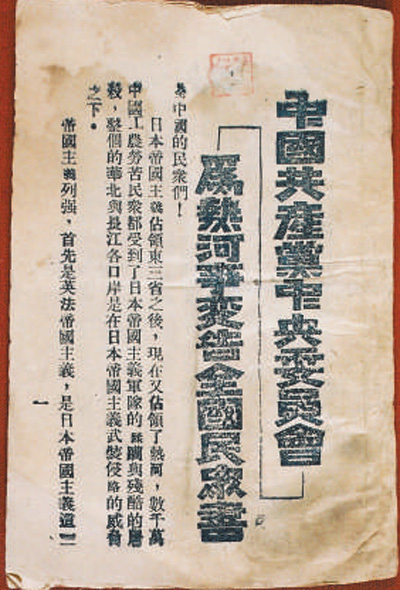 中國共產黨中央委員會
爲熱河事变告全國民衆書
全中國的民衆們！
日本帝國主義佔領東三省之後，現在又佔領了熱河，數千萬
中國工農勞苦民衆都受到了日本帝國主義軍隊的蹂躪與殘酷的屠
殺，整個的華北與長江各口岸是在日本帝國主義武裝侵略的威脅
之下。
帝國主義列强，首先是英法帝國主義，是日本帝國主義這
一